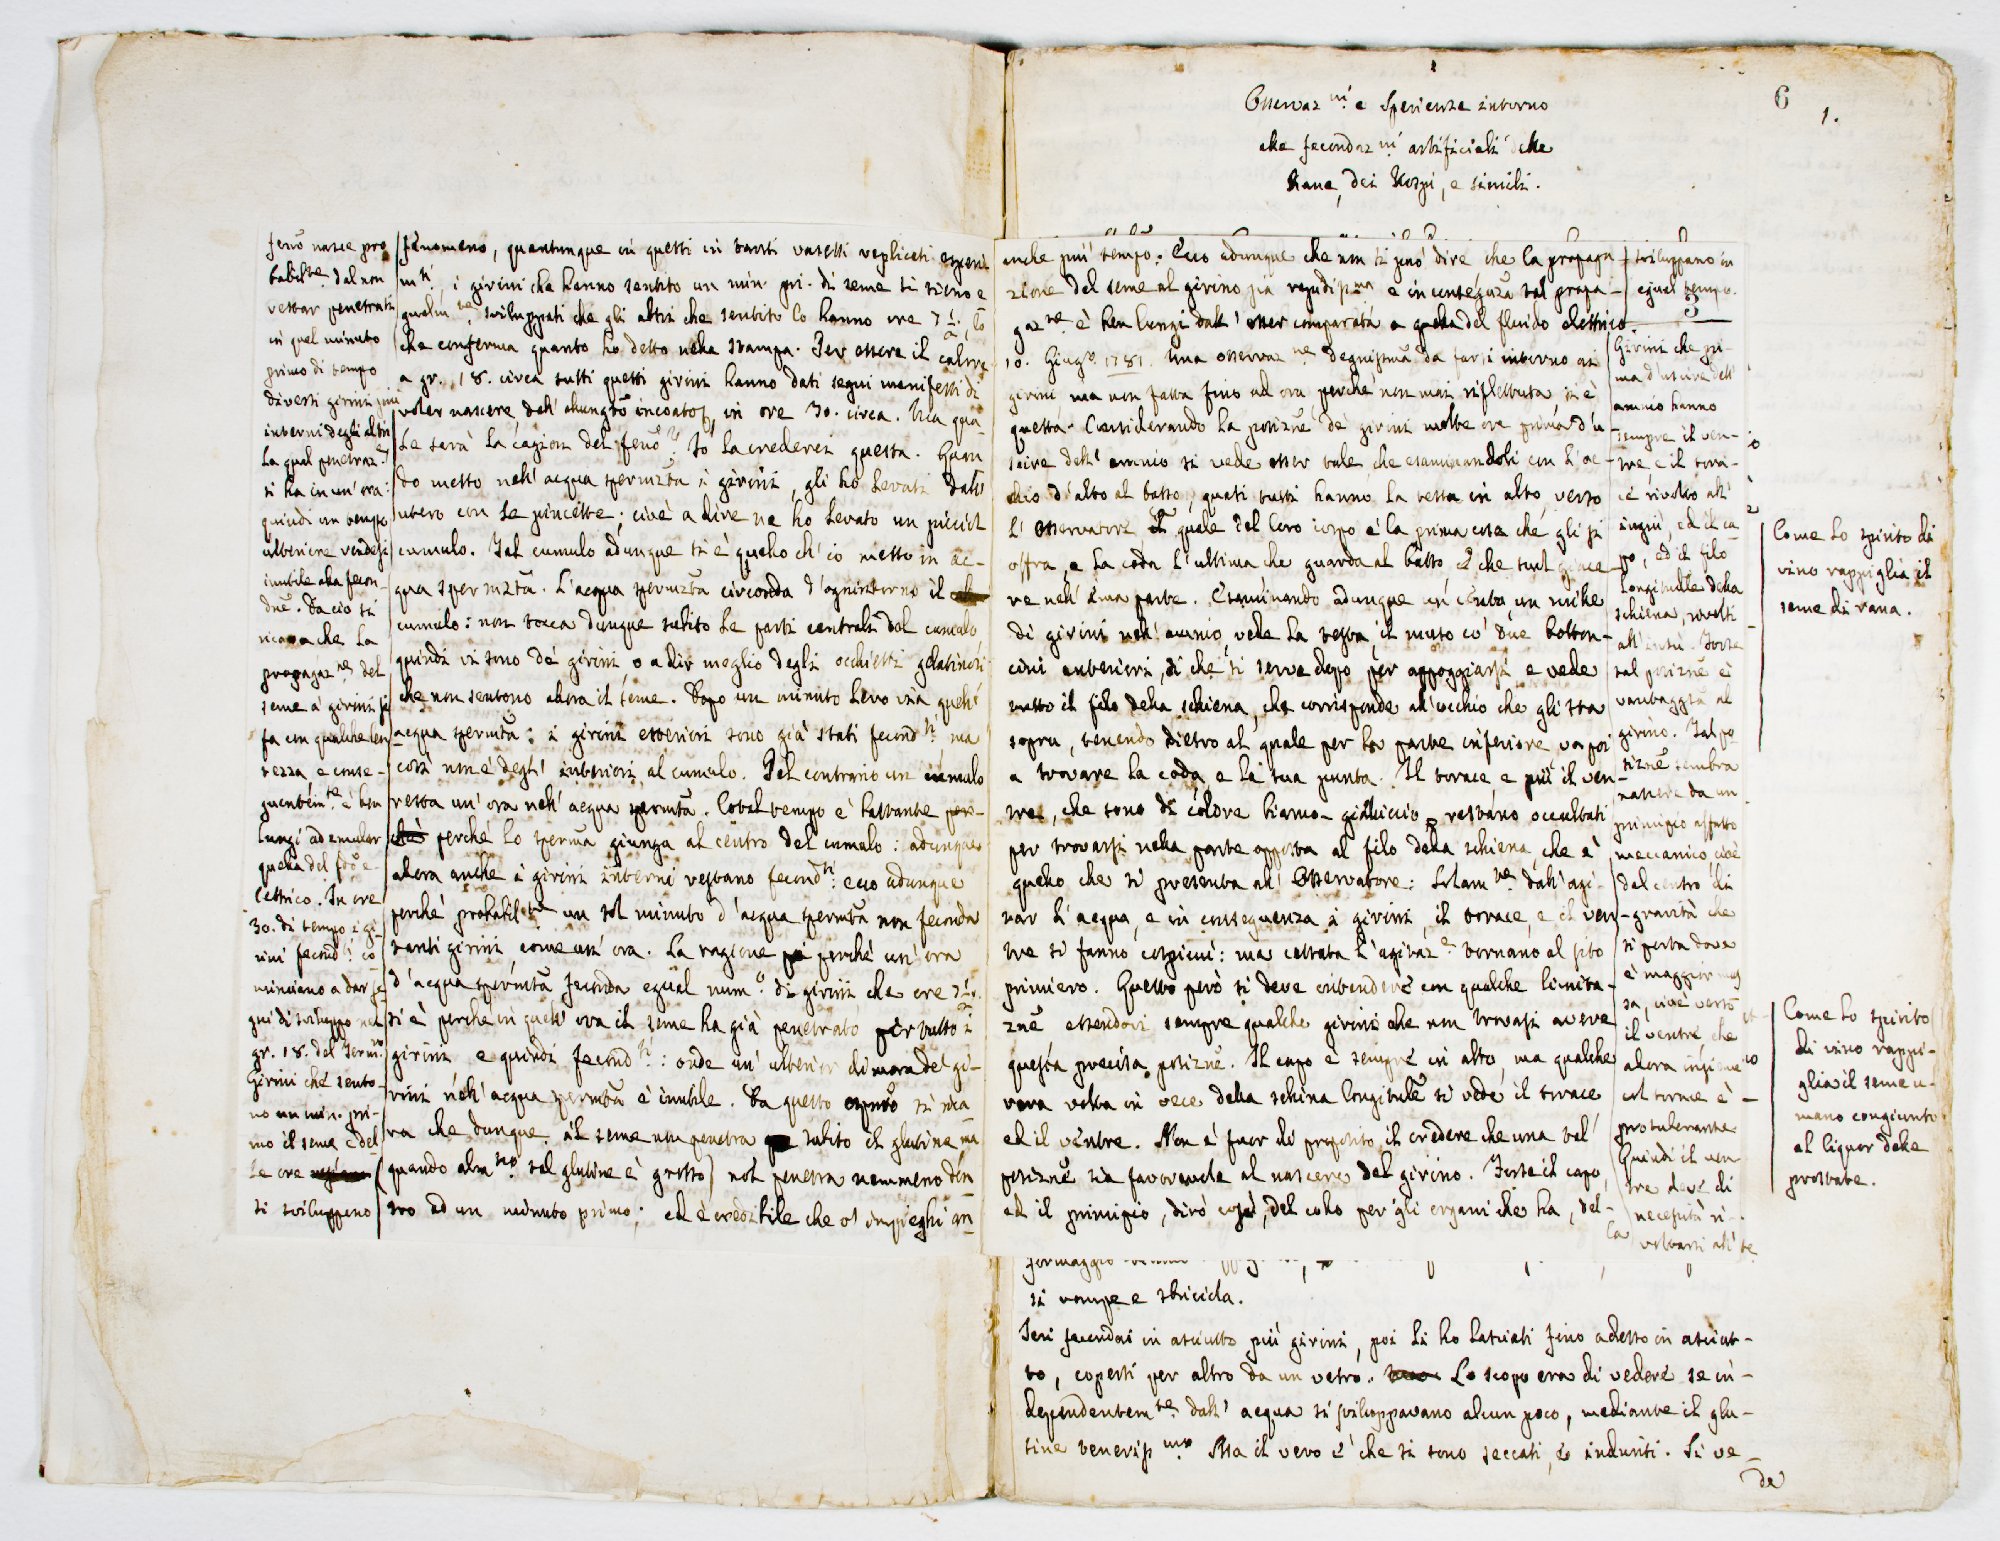 6
1.
Osservaz.ni e Sperienze intorno
alle fecondaz.ni artificiali delle
Rane, dei Rospi, e simili.
feno nasce pro
babilte. dal non
restar penetrati
in quel minuto
primo di tempo
diversi girini più
interni degli altri
La qual penetraz.e
si ha in un' ora:
quindi un tempo
ulteriore rendesi
inutile alla fecon-
dne. Da ciò si
ricava che la
propagaz.ne del
seme a' girini si
fa con qualche len
tezza e conse-
guentemte. è ben
lungi ad emular
quella del fdo e-
lettrico. In ore
30. di tempo i gi-
rini fecondti. co
minciano a dar se
gni di sviluppo nei
gr. 18. del Termo.
Girini che sento-
no un min. pri-
mo il seme e del-
le ore
si sviluppano
fenomeno, quantunque in questi in tanti vasetti replicati esperi
mti., i girini che hanno sentito un min. pri. di seme si sieno e
gualmte. sviluppati che gli altri che sentito lo hanno ore 7 1/2, lo
che conferma quanto ho detto nella stampa. Per essere il calore
a gr. 18. circa tutti questi girini hanno dati segni manifesti di
voler nascere dall' allungto incoatosi, in ore 30. circa. Ma qua-
le sarà la cagion del feno? Io la crederei questa. Quan
do metto nell' acqua spermzta i girini, gli ho levati dall'
utero con le pincette; cioè a dire ne ho levato un picciol
cumulo. Tal cumulo adunque si è quello ch' io metto in ac-
qua spermzta. L'acqua spermzta circonda d'ogn'intorno il
cumulo: non tocca dunque subito le parti centrali del cumulo,
quindi vi sono de' girini o a dir meglio degli occhietti gelatinosi
che non sentono allora il seme. Dopo un minuto levo via quell'
acqua spermta: i girini esteriori sono già stati fecondti, ma
così non è degl' interiori al cumulo. Pel contrario un cumulo
resta un' ora nell' acqua spermta. Cotal tempo è bastante per-
chè perchè lo sperma giunga al centro del cumulo: adunque
allora anche i girini interni restano fecondti: ecco adunque
perchè probabilte. un sol minuto d'acqua spermta non feconda
tanti girini, come un' ora. La ragione poi perchè un' ora
d'acqua spermta feconda egual numo. di girini che ore 7 1/2.
si è perchè in quell' ora il seme ha già penetrato per tutto i
girini, e quindi fecondti: onde un' ulterior dimora de' gi-
rini nell' acqua spermta è inutile. Da questo espmto si rica
va che dunque il seme non penetra subito il glutine ma
(quando almno tal glutine è grosso) nol penetra nemmeno den
tro ad un minuto primo; ed è credibile che vi impieghi an
anche più tempo. Ecco adunque che non si può dire che la propaga-
zione del seme al girino sia rapidissma e in conseguza tal propa-
gazne è ben lungi dall' esser comparata a quella del fluido elettrico.
10. Giugo. 1781. Una osservazne degnissma da farsi intorno ai
girini ma non fatta fino ad ora perchè non mai riflettuta si è
questa. Considerando la poszne de' girini molte ore prima d'u-
scire dell' amnio si vede esser tale che esaminandoli con l'oc-
chio d'alto al basso, quasi tutti hanno la testa in alto, verso
l' Osservatore, il quale del loro corpo è la prima cosa che gli si
offra, e la coda l'ultima che guarda al basso, e che suol giace-
re nell' ima parte. Esaminando adunque un cento, un mille
di girini nell' amnio, vede la testa, il muso co' due botton-
cini anteriori, di che si serve dopo per appoggiarsi e vede
tutto il filo della schiena, che corrisponde all' occhio che gli sta
sopra, tenendo dietro al quale per la parte inferiore va poi
a trovare la coda, e la sua punta. Il torace, e più il ven
tre, che sono di colore bianco-gialliccio, restano occultati
per trovarsi nella parte opposta al filo della schiena, che è
quello che si presenta all' Osservatore: Solamte. dall' agi-
tar l'acqua, e in conseguenza i girini, il torace, e il ven
tre si fanno cospicui: ma cessata l'agitaze tornano al sito
primiero. Questo però si deve intendere con qualche limita-
zne essendovi sempre qualche girini che non trovasi avere
questa precisa poszne. Il capo è sempre in alto, ma qualche
rara volta in vece della schina longitudle si vede il torace
ed il ventre. Non è fuor di proposito il credere che una tal
poszne sia favorevole al nascere del girino. Forse il capo,
ed il principio, dirò così, del collo per gli organi che ha, del-
la
sviluppano in
egual tempo.
3
Girini che pri-
ma d'uscire dell'
amnio hanno
sempre il ven-
tre e il tora-
ce rivolto all'
ingiù, ed il ca
po, ed il filo
longitudle della
schiena, rivolti
all' insù. Forse
tal poszne è
vantaggsa al
girino. Tal po
szne sembra
nascere da un
principio affatto
meccanico cioè
dal centro di
gravità che
si porta dove
è maggior mas
sa, cioè verso
il ventre che
allora insieme
col torace è
protuberante
Quindi il ven
tre deve di
necessità ri-
voltarsi all' be
Come lo spirito di
vino rappiglia il
seme di rana.
Come lo spirito
di vino rappi-
glia il seme u-
mano congiunto
al liquor delle
prostate.
formaggio
si rompe e sbricciola.
Ieri fecondai in asciutto più girini, poi li ho lasciati fino adesso in asciut-
to, coperti per altro da un vetro. Lo scopo era di vedere se in-
dependentemte. dall' acqua si sviluppavano alcun poco, mediante il glu-
tine tenerissmo. Ma il vero è che si sono seccati, e induriti. Si ve-
de